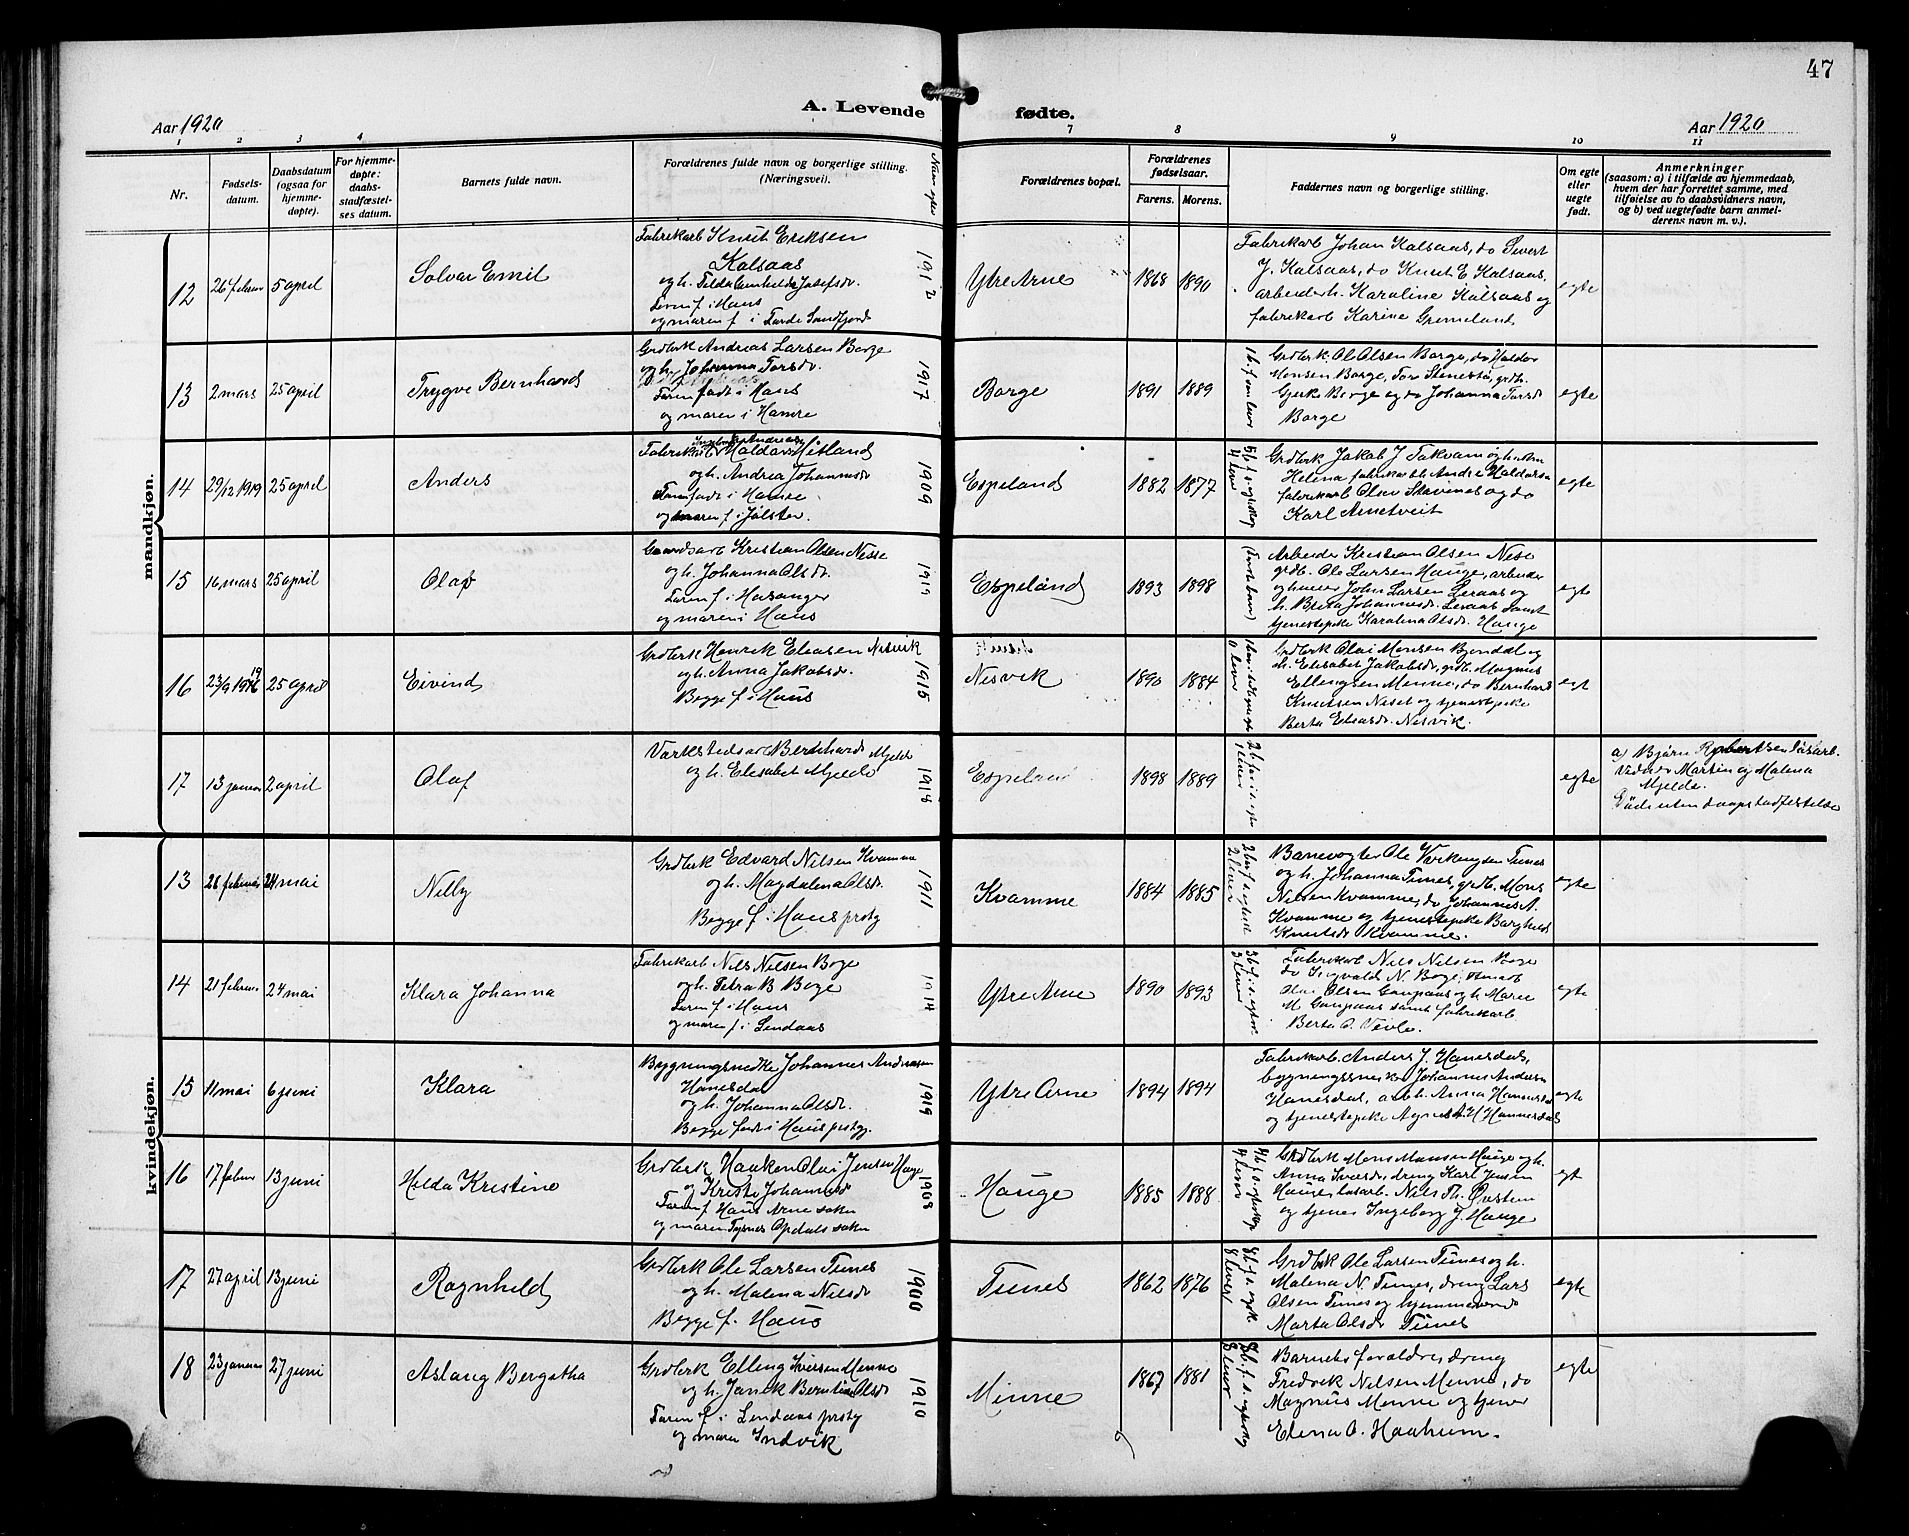 47
A. Levende fødte.
Aar 1920
Aar 1920
1 2 3 4 7 8 9 10 11
Nr.
Fødsels-
datum.
Daabsdatum
(ogsaa for
hjemme-
døpte).
For hjemme-
døpte:
daabs-
stadfæstel-
ses datum.
Barnets fulde navn.
Forældrenes fulde navn og borgerlige stilling.
(Næringsvei).
Forældrenes bopæl.
Forældrenes
fødselsaar.
Farens. Morens.
Faddernes navn og borgerlige stilling.
Om egte
eller
uegte
født.
Anmerkninger
(saasom: a) i tilfælde av hjemmedaab,
hvem der har forrettet samme, med
tilføielse av to daabsvidners navn,
og b) ved uegtefødte barn anmel-
derens navn m. v.).
mandkjøn.
12 26 februar 5 april Solvar Emil
Fabrikarb Knut Eriksen
Kalsaas
Faren f i Haus
og moren f i Førde Søndfjord
1912 Ytre Arne 1868 1890
Fabrikarb Johan Kalsaas, do Sivert
J. Kalsaas, do Knut E Kalsaas,
arbeiderh. Karoline Kalsaas og
fabrikarb Karine Grimeland
egte
13 2 mars 25 april Trygve Bernhard
Grdbrk Andreas Larsen Borge
og h. Johanna Torsdr.
Faren født i Haus
og moren i Hamre
1917 Borge 1891 1889
Grdbrk. Ol Olsen Borge, do Haldor
Monsen Borge, Tor Stenestø, grdh.
Gjerke Borge og do Johanna Torsdr
Borge
egte
14 29/12 1919 25 april Anders
Fabrikarb Haldor Hitland
og h. Andrea Johannesdr
Faren født i Hamre
og moren f. i Jølster.
1909 Espeland 1882 1877
4 lever
Grdbrk Jakob J Takvam og hustru
Helena fabrikarb Andr. Haldorsen
fabrikarb Olav Stavenes og do
Karl Arnetveit
egte
15 16 mars 25 april Olav
Gaardsarb Kristian Olsen Nesse
og h. Johanna Olsdr.
Faren f i Masanger
og moren i Haus
1919 Espeland 1893 1898
(Første barn)
Arbeider Kristian Olsen Nese
grdb. Ole Larsen Hauge, arbeider
og huseier John Larsen Leraas og
h. Brita Johannesdr. Leraas samt
tjenestepike Karolina Olsdr. Hauge
egte
16 23/9 1919 25 april Eivind
Grdbrk Henrik Eliasen Nesvik
og h. Anna Jakobsdr.
Begge f i Haus
1915 Nesvik 1890 1884
Grdbrk Olai Monsen Bjøndal og
h. Elisabet Jakobsdr, grdb. Magnus
Ellingsen Menne, do Bernhard
Knutsen Neset og tjenestepike
Berta Eliasdr. Nesvik.
egt
17 13 januar 2 april Olaf
Verkstedsarb Bernhard Mjelde
og h. Elisabet Mjelde
1918 Espeland 1898 1889
egte
a) Bjørn Robertsen løsarb.
Vidner Martin og Malena
Mjelde.
Død uten daapstadfestelse
kvindekjøn.
13 28 februar 24 mai Nelly
Grdbrk Edvard Nilsen Kvamme
og h. Magdalena Olsdr.
Begge f i Haus prstg
1911 Kvamme 1884 1885
Banevogter Ole Verkingsen Tunes
og h. Johanna Tunes, grdb. Mons
Nilsen Kvamme, do Johannes A.
Kvamme og tjenestepike Borghild
Knutsdr Kvamme.
egte
14 21 februar 24 mai Klara Johanna
Fabrikarb Nils Nilsen Boge
og h. Petra B Boge
Faren f i Haus
og moren f i Lindaas
1914 Ytre Arne 1890 1893
3 lever
Fabrikarb Nils Nilsen Boge
do Sigvald N. Boge,
Olai Olsen Gaupaas og h. Marie
M Gaupaas samt fabrikarb.
Berta O. Vevle.
egte
15 11 mai 6 juni Klara
Bygningsnedke Johannes Andreassen
Hanesdal
og h. Johanna Olsdr.
Begge født i Haus prstg.
1919 Ytre Arne 1894 1894
Fabrikarb. Anders J. Hanesdal,
bygningssnedker Johannes Andersen
Hanesdal, arbh. Anna Hannesdal
og tjenestepike Agnes A. H Hannesdal
egte
16 17 februar 13 juni Hilda Kristine
Grdbrk Haaken Olai Jensen Hauge
og Kristi Johannesdr
Faren f Haus Arne sokn
og moren Tysnes Opdals sokn
1908 Hauge 1885 1888
4 lever
Grdbrk Mons Monsen Hauge og h.
Anna Ivarsdr, dreng Karl Jensen
Hauge, løsarb. Nils Th. Øvstun
og tjener Ingeborg J. Hauge
egt
17 27 april 13 juni Ragnhild
Grdbrk Ole Larsen Tunes
og h. Malena Nilsdr
Begge f. Haus
1900 Tunes 1862 1876
8 lever
Grdbrk Ole Larsen Tunes og h.
Malena N. Tunes, dreng Lars
Olsen Tunes og hjemmeværende
Marta Olsdr Tunes
egte
18 23 januar 27 juni Aslaug Bergitha
Grdbrk Elling Iversen Menne
Faren f i Lindaas prstg
og moren Indvik
1910 Minne 1867 1881
8 lever
Barnets foraldre, dreng
Fredrik Nilsen Menne, do
Magnus Menne og tjener
Elena O. Haaheim.
egte